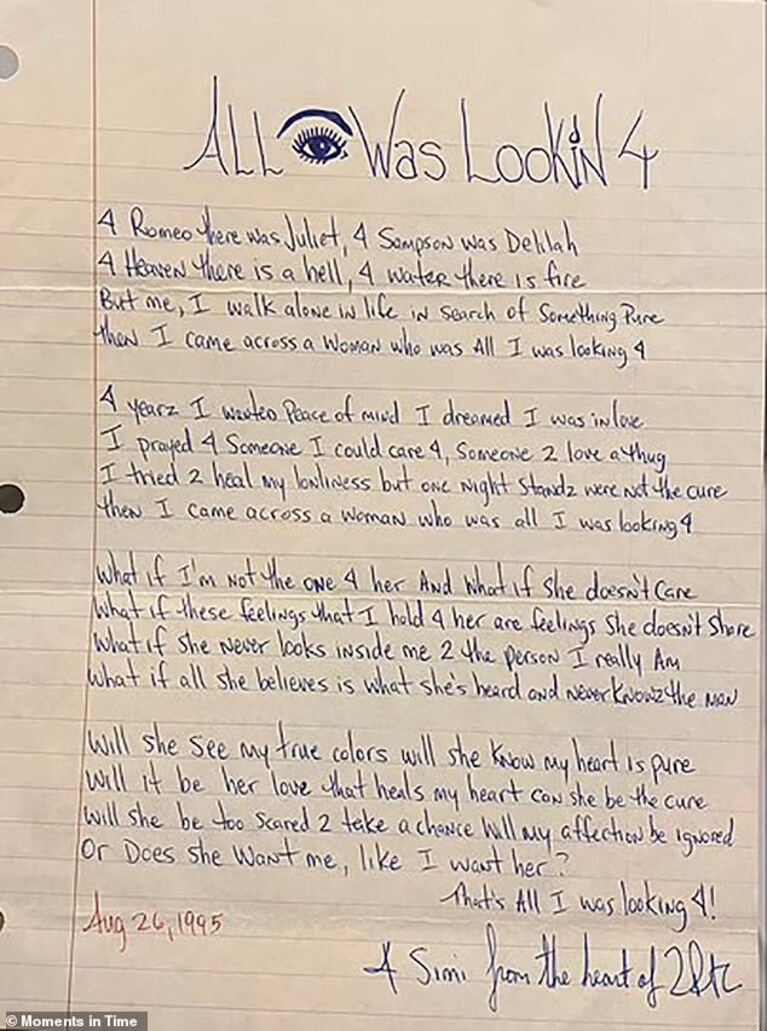 ALL 👁 Was Lookin 4
4 Romeo there was Juliet, 4 Sampson was Delilah
4 Heaven there is a hell, 4 water there is fire
But me, I walk alone in life in search of Something Pure
then I came across a Woman who was All I was looking 4
4 yearz I wanted Peace of mind I dreamed I was in love
I prayed 4 Someone I could care 4, Someone 2 love a thug
I tried 2 heal my lonliness but one night Standz were not the cure
then I came across a woman who was all I was looking 4
What if I'm not the one 4 her And What if She doesn't Care
What if these feelings that I hold 4 her are feelings She doesn't Share
What if She never looks inside me 2 the person I really Am
What if all she believes is what she's heard and never knowz the man
Will she see my true colors will she know my heart is pure
Will it be her love that heals my heart can she be the cure
Will she be too scared 2 take a chance Will my affection be ignored
Or Does she Want me, like I want her?
That's All I was looking 4!
Aug 26, 1995
4 Simi from the heart of 2Pac
© Moments in Time